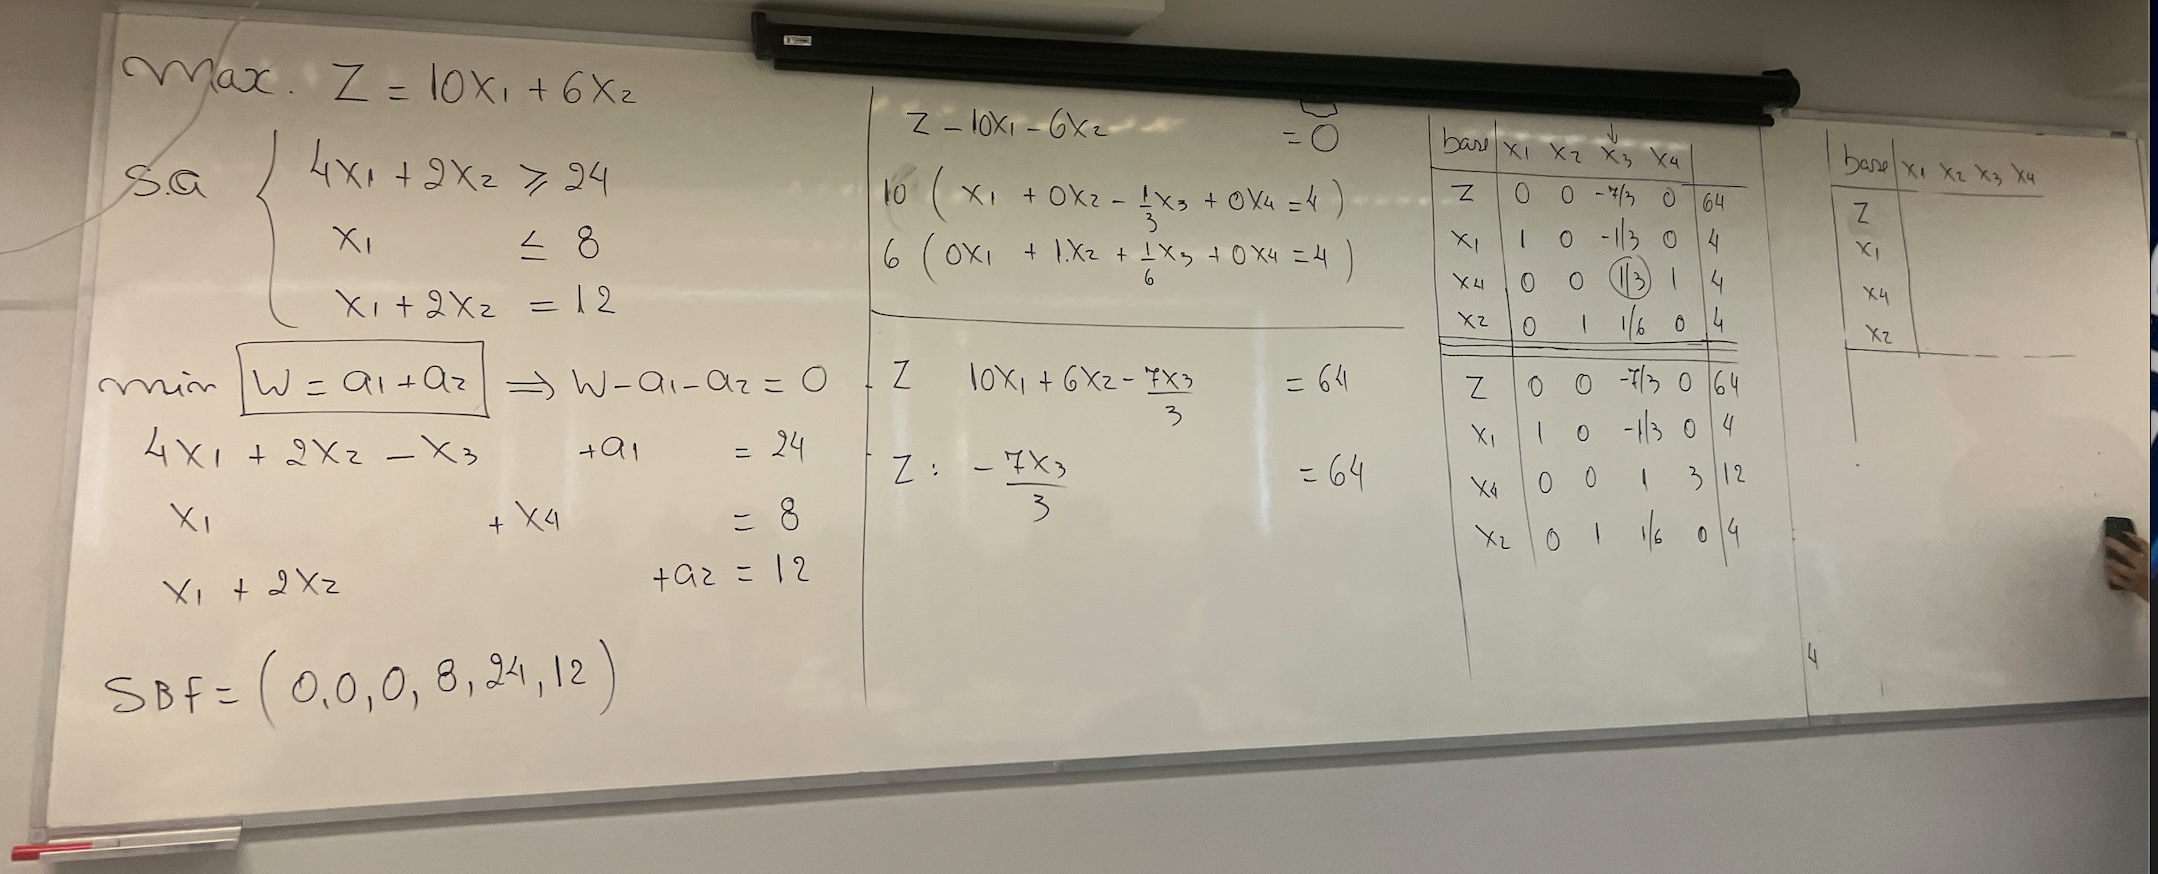 Max. Z = 10x₁ + 6x₂
s.a
4x₁ + 2x₂ ⩾ 24
x₁ ≤ 8
x₁ + 2x₂ = 12
min W = a₁ + a₂ ⟹ W - a₁ - a₂ = 0
4x₁ + 2x₂ - x₃ + a₁ = 24
x₁ + x₄ = 8
x₁ + 2x₂ + a₂ = 12
SBF = (0,0,0,8,24,12)
Z - 10x₁ - 6x₂ = 0
10 (x₁ + 0x₂ - 1/3 x₃ + 0x₄ = 4)
6 (0x₁ + 1.x₂ + 1/6 x₃ + 0x₄ = 4)
Z 10x₁ + 6x₂ - 7x₃/3 = 64
Z : - 7x₃/3 = 64
↓
base x₁ x₂ x₃ x₄
Z 0 0 -7/3 0 64
x₁ 1 0 -1/3 0 4
x₄ 0 0 1/3 1 4
x₂ 0 1 1/6 0 4
Z 0 0 -7/3 0 64
x₁ 1 0 -1/3 0 4
x₄ 0 0 1 3 12
x₂ 0 1 1/6 0 4
base x₁ x₂ x₃ x₄
Z
x₁
x₄
x₂
4